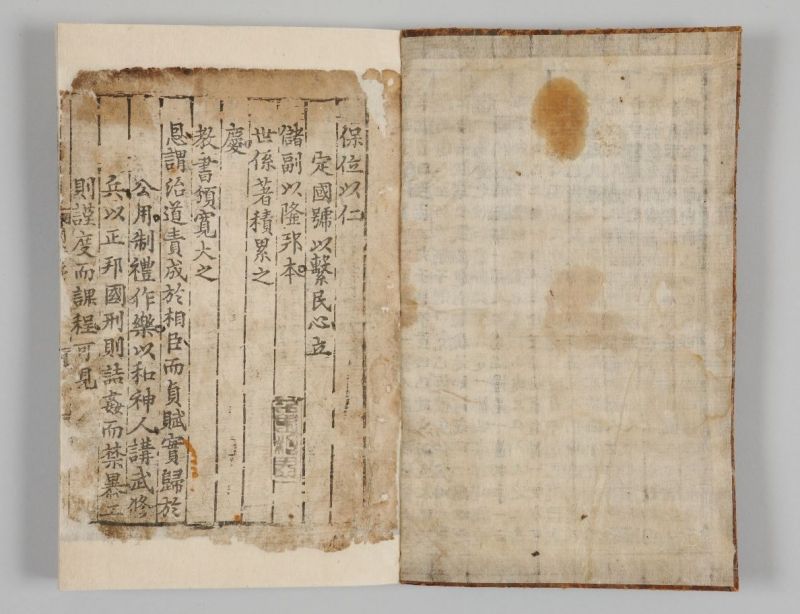 保位以仁
定國號以繫民心立
儲副以隆邦本
世係著積累之
慶
教書頒寬大之
恩謂治道責成於相臣而貞賦實歸於
公用制禮作樂以和神人講武修
兵以正邦國刑則詰姦而禁暴工
則謹度而課程可見